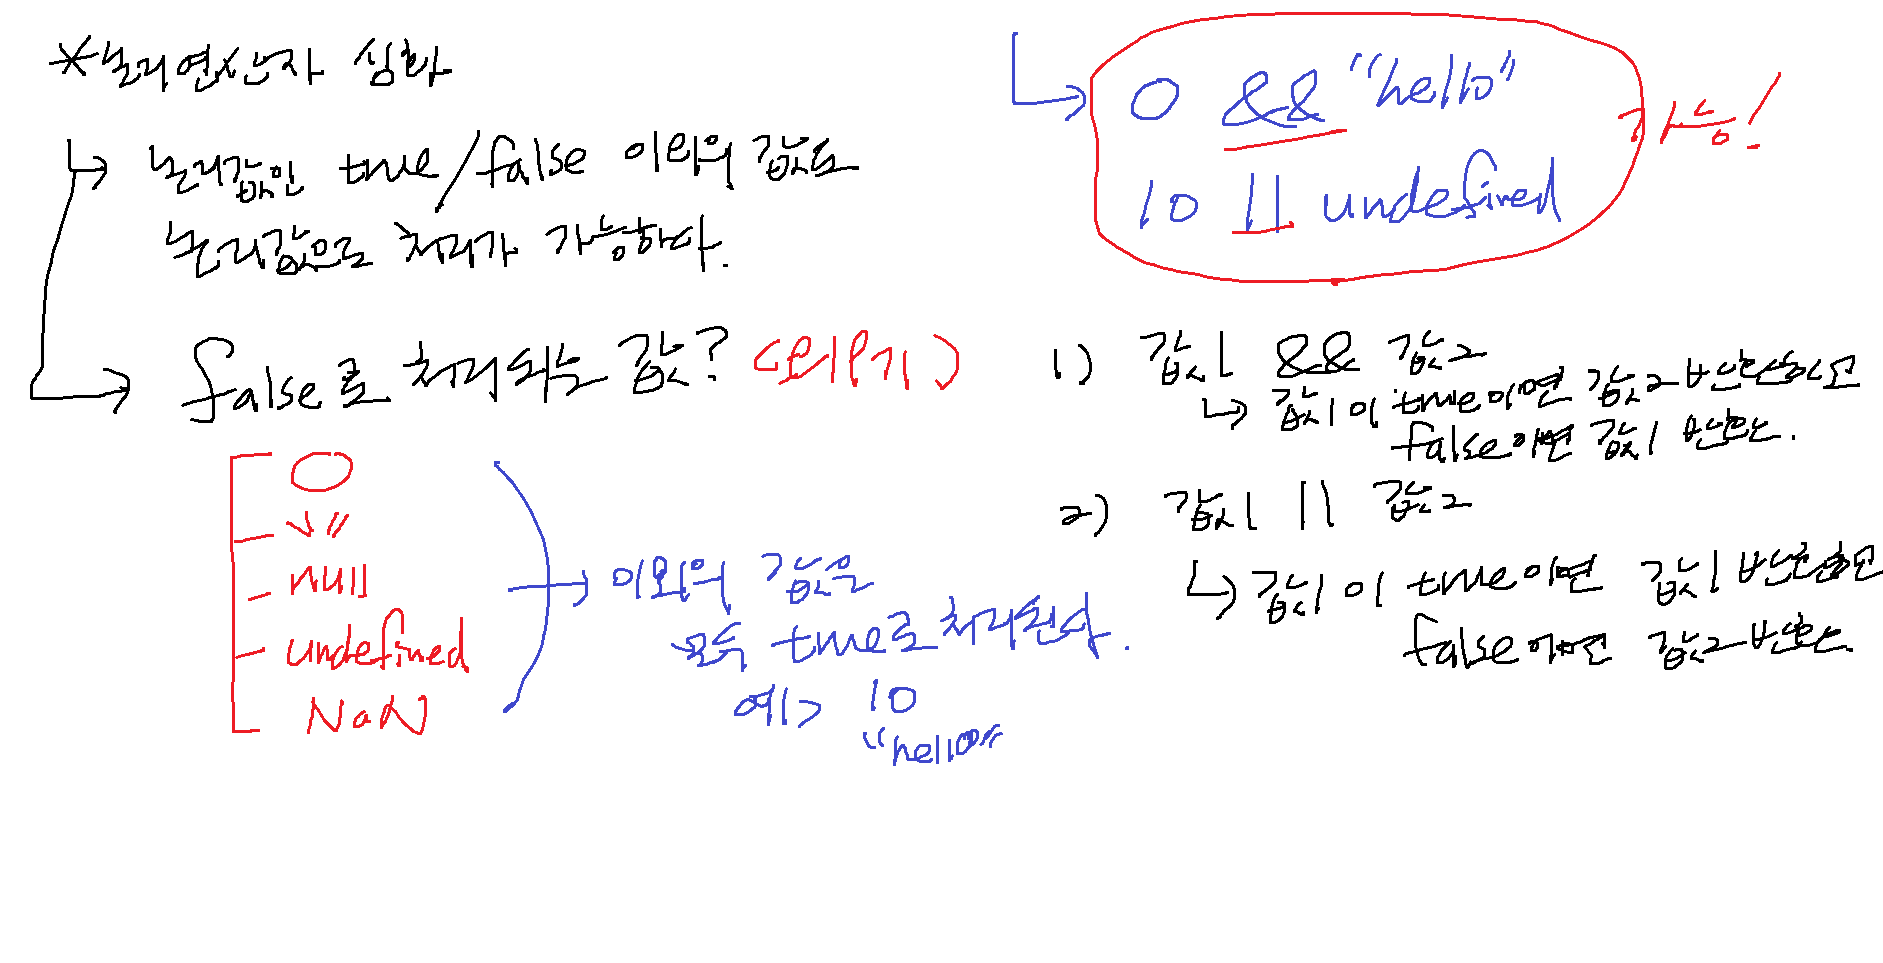 *논리연산자 심화
논리값인 true/false 이외의 값도
논리값으로 처리가 가능하다.
false로 처리되는 값? (외우기)
0
""
null
undefined
NaN
이외의 값은
모두 true로 처리된다.
예> 10
"hello"
0 && "hello"
10 || undefined
가능!
1) 값1 && 값2
값1이 true이면 값2 반환하고
false이면 값1 반환.
2) 값1 || 값2
값1이 true이면 값1 반환하고
false이면 값2 반환